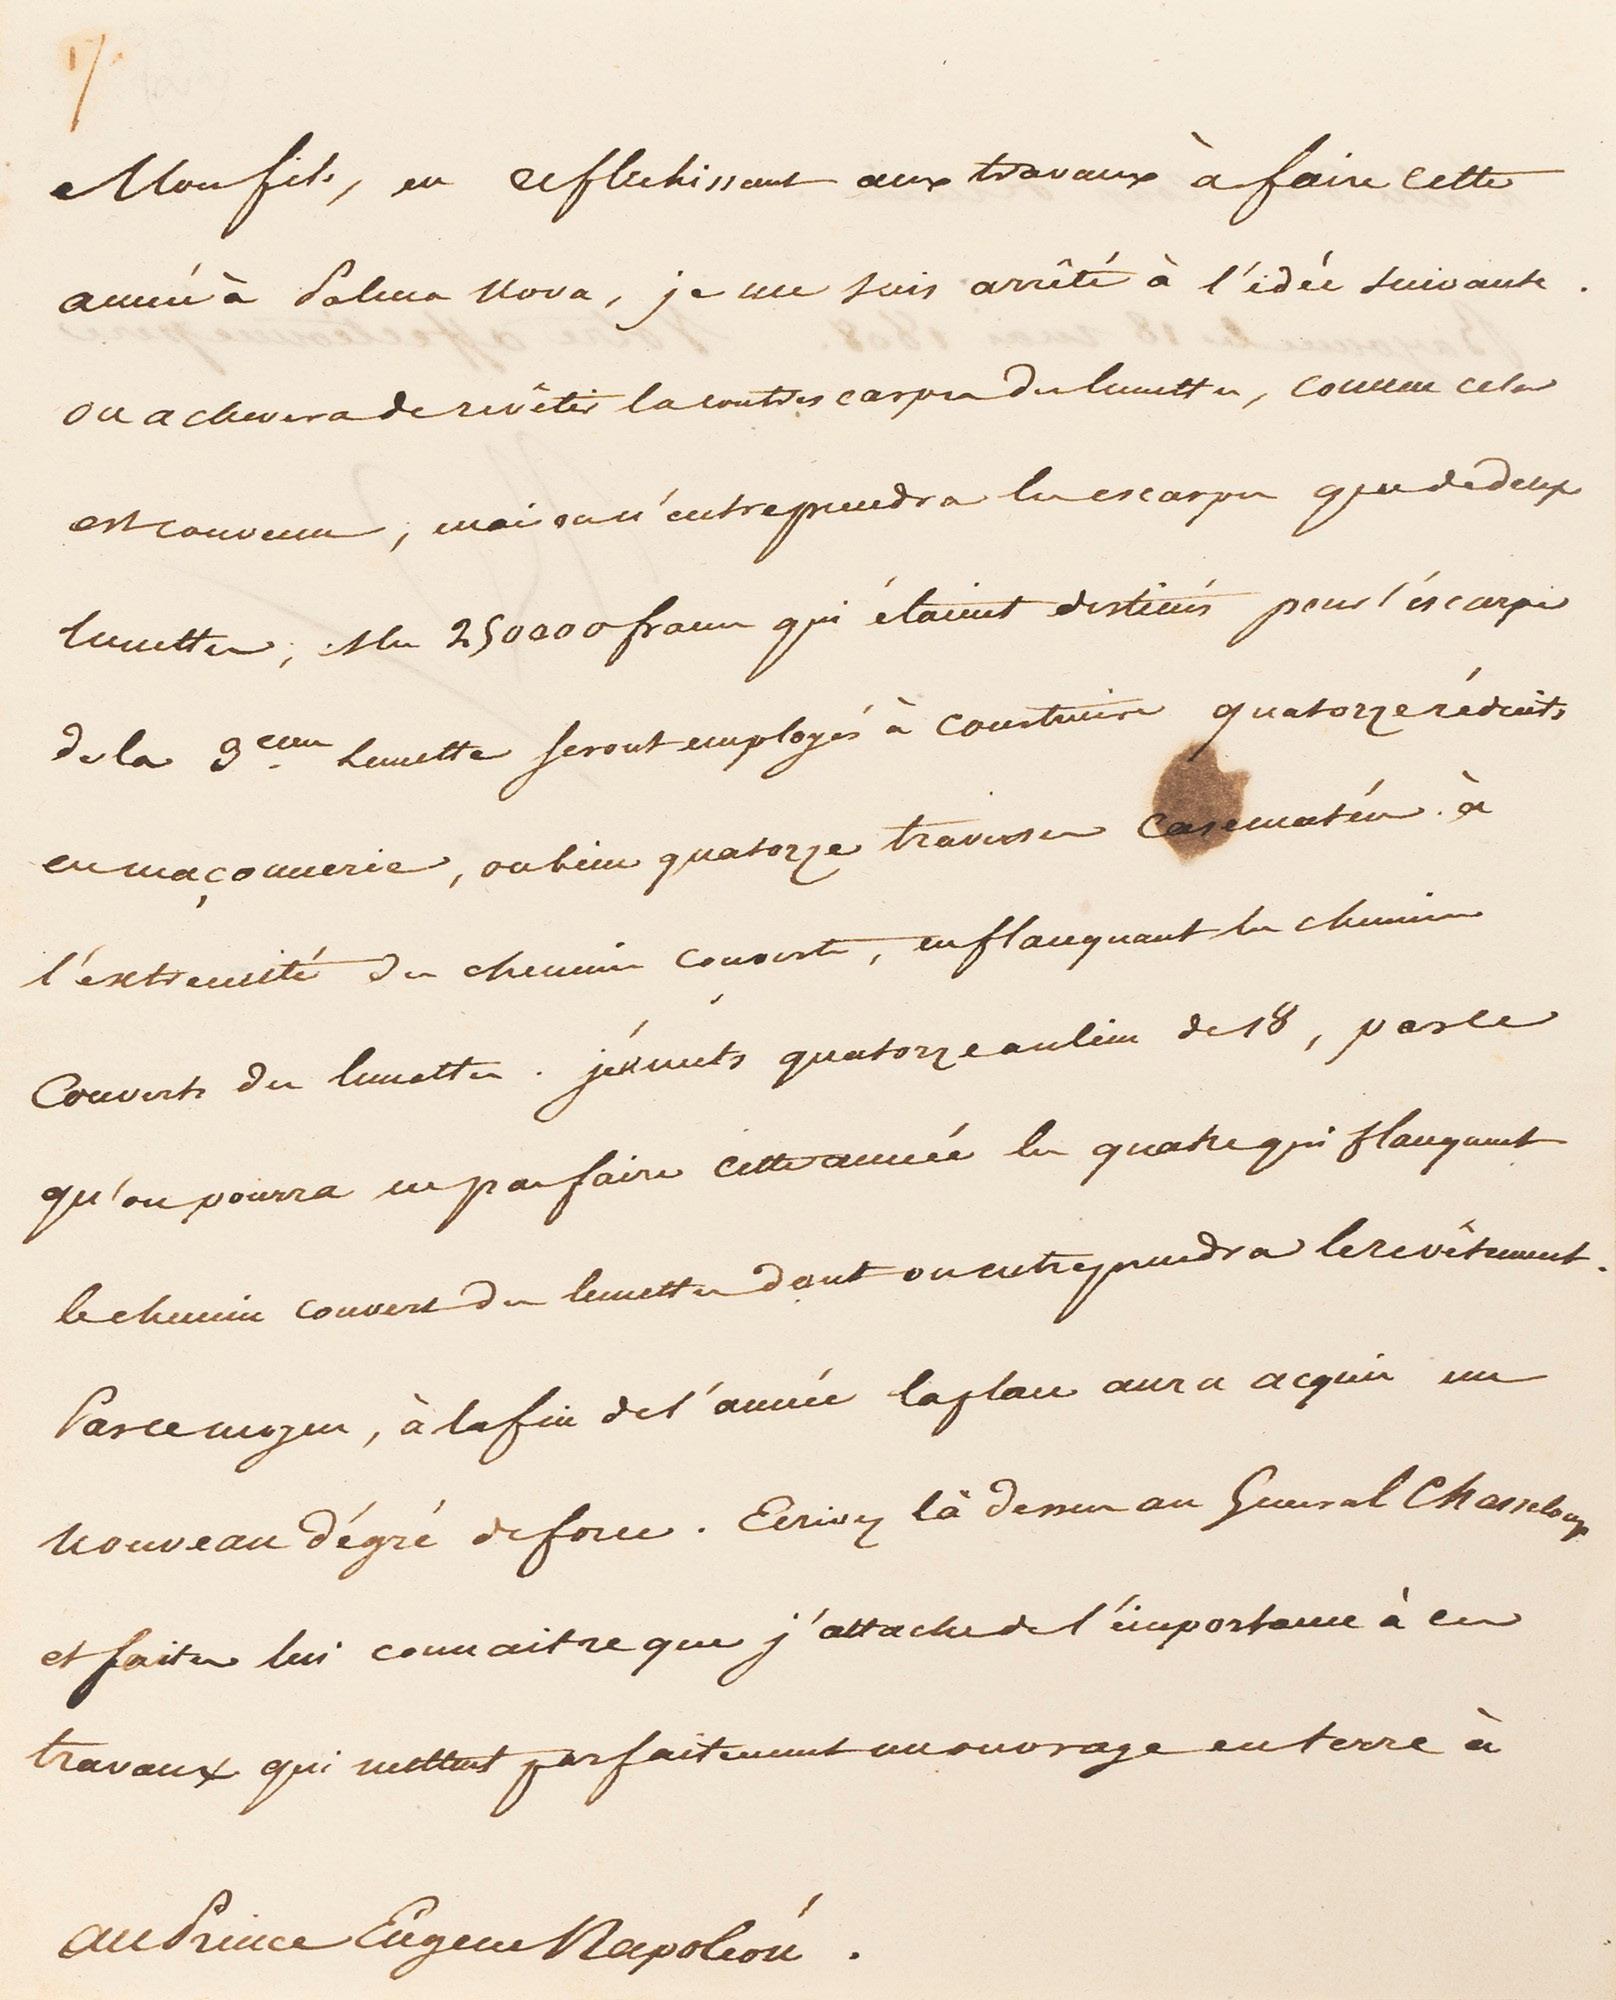 1/.
Mon fils, en reflechissant aux travaux à faire cette
année à Palma Nova, je me suis arrêté à l'idée suivante.
on achevera de revêtir la contrescarpe des lunettes, comme cela
est convenu, mais on n'entreprendra les escarpes que de deux
lunettes, & les 250000 francs qui étaient destinés pour l'éscarpe
de la 3eme lunette seront employés à construire quatorze réduits
en maçonnerie, ou bien quatorze traverses casematées à
l'extremité des chemins couverts, en flanquant les chemins
couverts des lunettes. je mets quatorze au lieu de 18, parce
qu'on pourra ne pas faire cette année les quatre qui flanquent
le chemin couvert des lunettes dont on entreprendra le revêtement.
Par ce moyen, à la fin de l'année la place aura acquis un
nouveau dégré de force. Ecrivez là dessus au Général Chasseloup
et faites lui connaitre que j'attache de l'importance à ces
travaux qui mettent parfaitement un ouvrage en terre à
au Prince Eugene Napoléon.